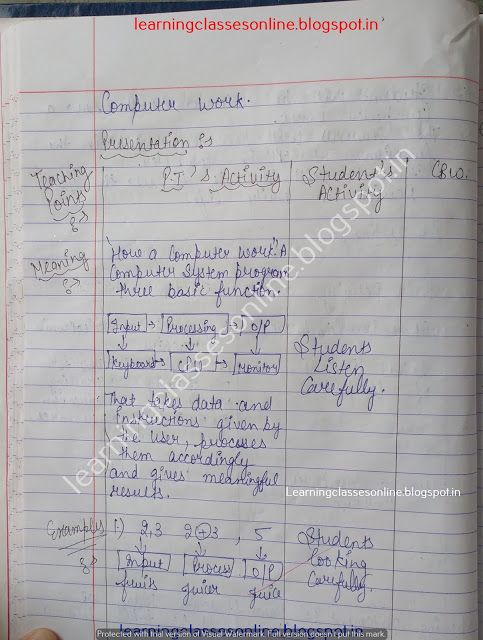 learningclassesonline.blogspot.in
Computer Work.
Presentation :-
Teaching Points :-
P.T's Activity
Student's Activity
CBW.
Meaning :-
"How a Computer Work". A
Computer System program
three basic function.
Input → Processing → O/P
Keyboard → CPU → Monitor
Students
Listen
Carefully.
That takes data and
instructions given by
the user, processes
them accordingly
and gives meaningful
results.
Learningclassesonline.blogspot.in
Examples :-
i) 2,3 2+3, 5
Input Process O/P
fruits juicer juice
Students
looking
Carefully.
learningclassesonline.blogspot.in
learningclassesonline.blogspot.in
Protected with trial version of Visual Watermark. Full version doesn't put this mark.